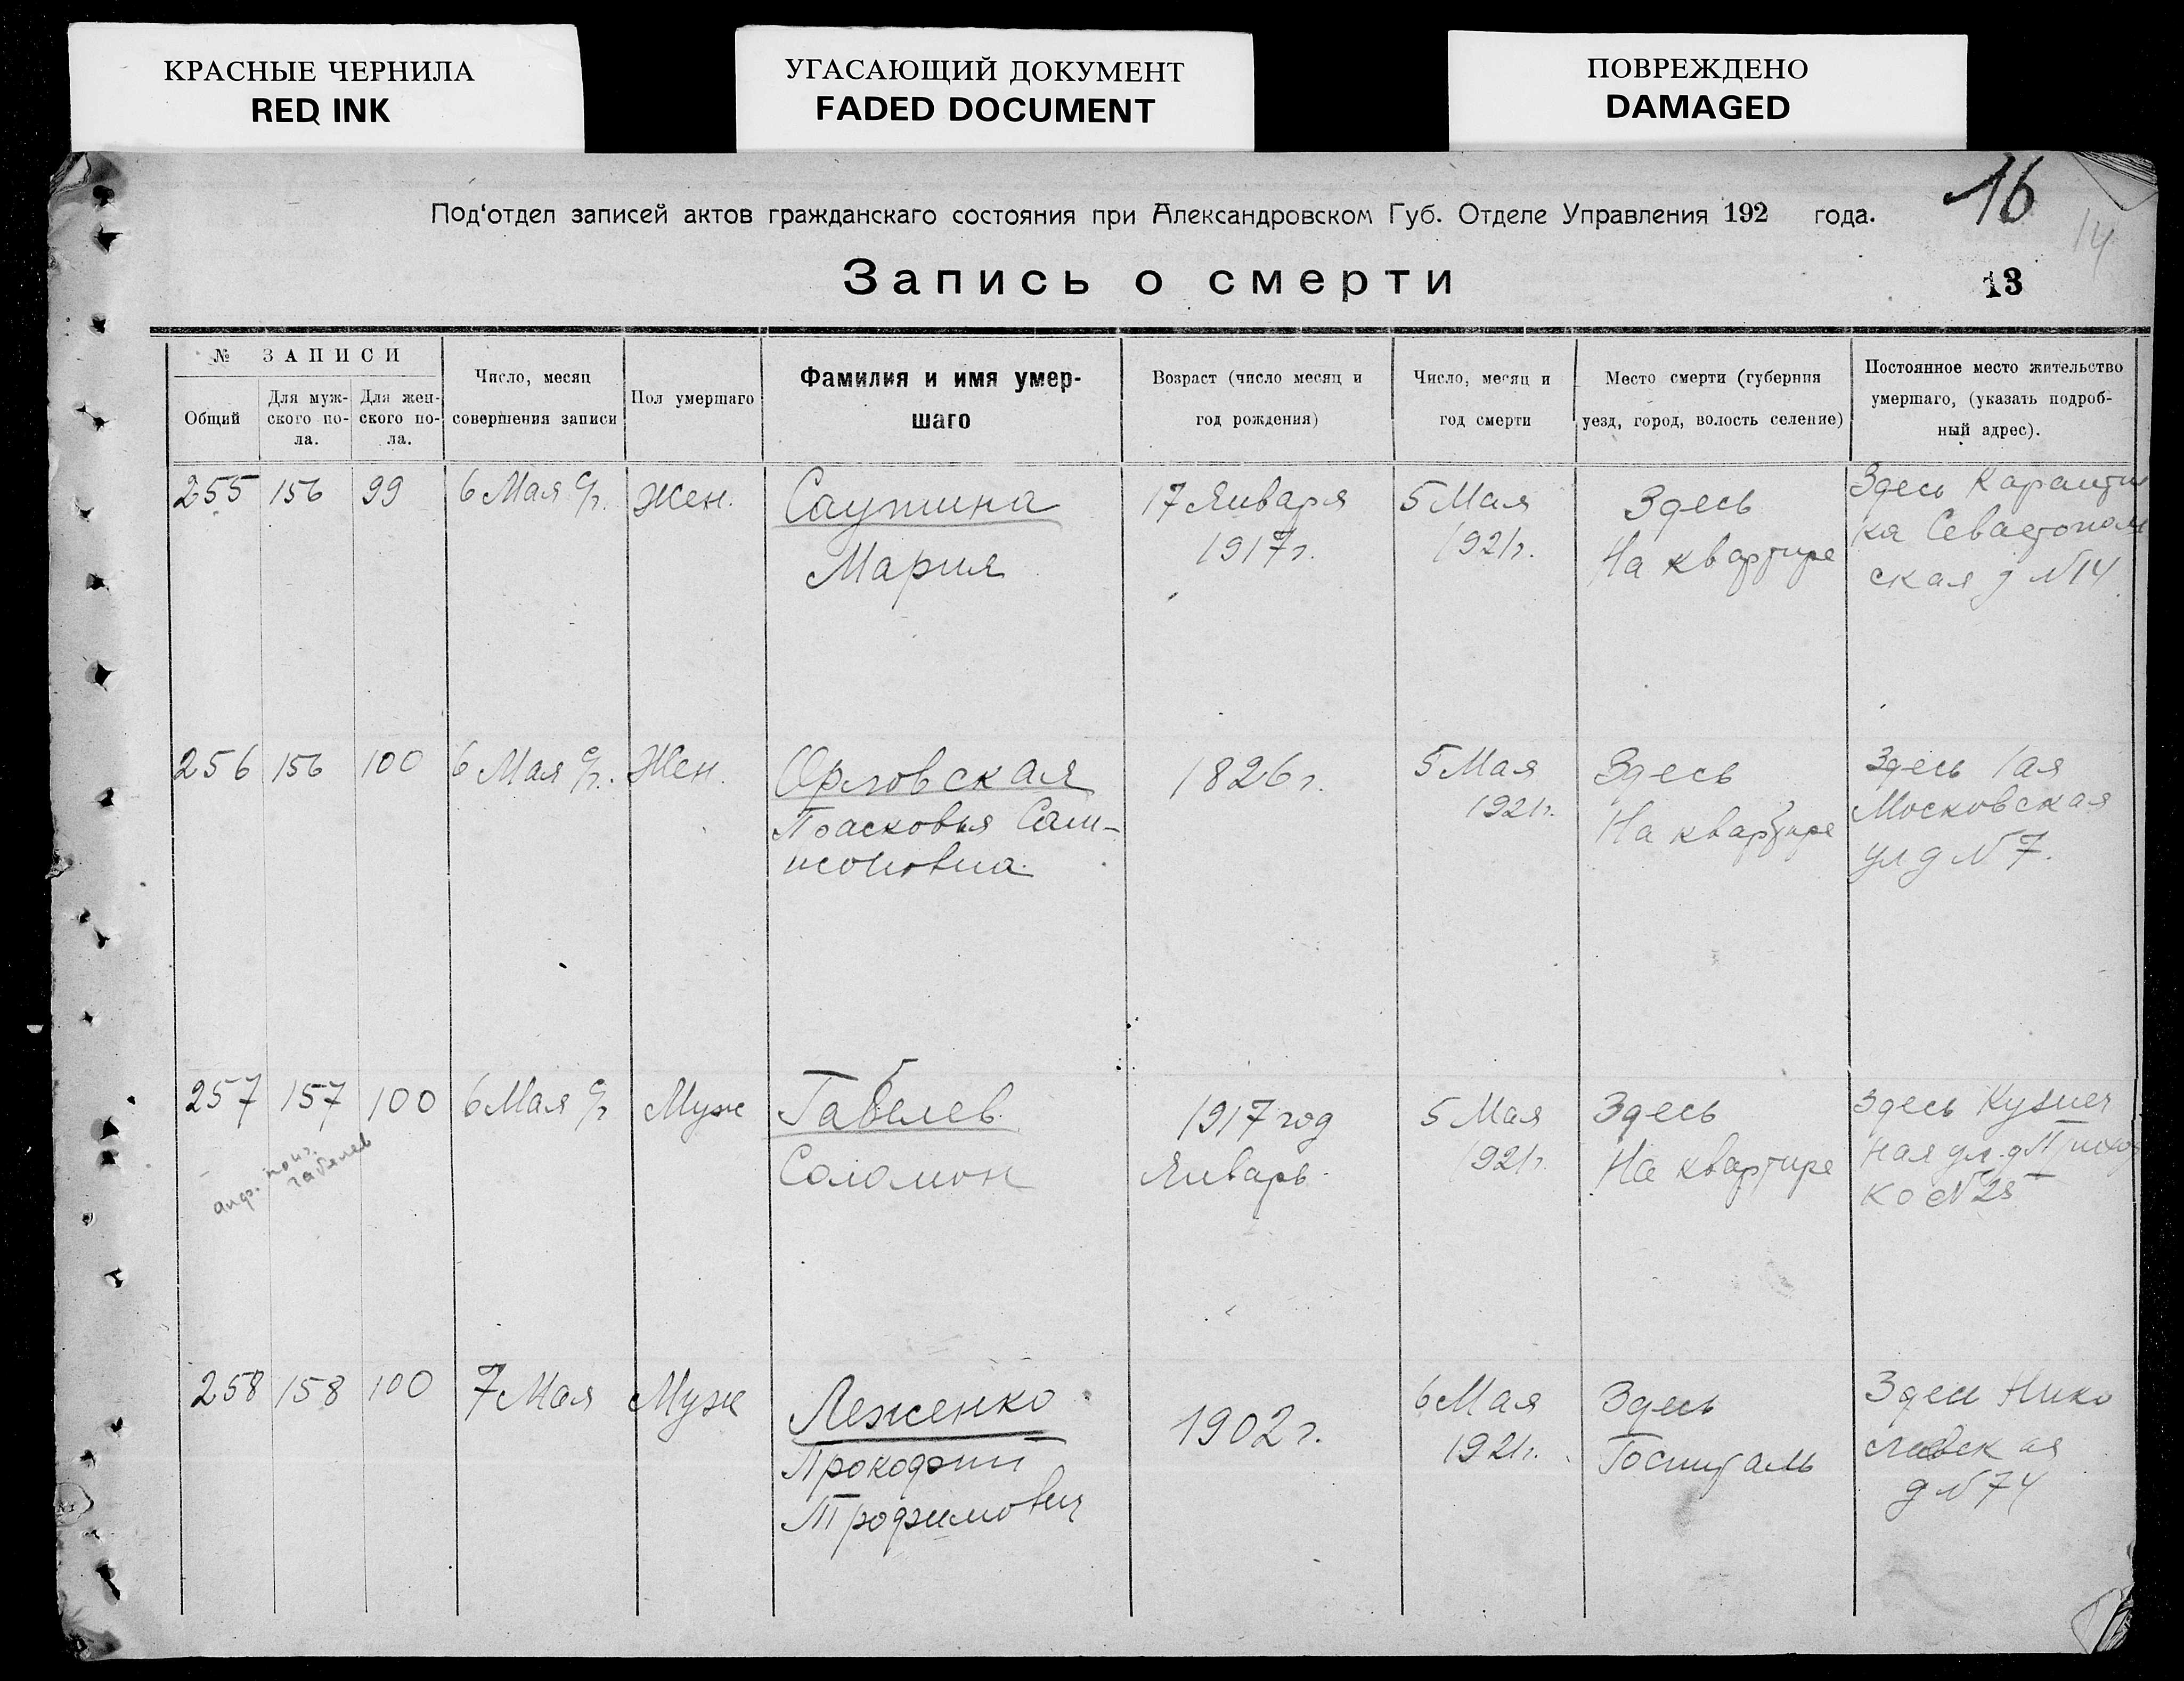 КРАСНЫЕ ЧЕРНИЛА
RED INK
УГАСАЮЩИЙ ДОКУМЕНТ
FADED DOCUMENT
ПОВРЕЖДЕНО
DAMAGED
16
14
Под‘отдел записей актов гражданскаго состояния при Александровском Губ. Отделе Управления 192 года.
Запись о смерти
13
№ ЗАПИСИ
Общий
Для муж-
ского по-
ла.
Для жен-
ского по-
ла.
Число, месяц
совершения записи
Пол умершаго
Фамилия и имя умер-
шаго
Возраст (число месяц и
год рождения)
Число, месяц и
год смерти
Место смерти (губерния
уезд, город, волость селение)
Постоянное место жительство
умершаго, (указать подроб-
ный адрес).
255 156 99 6 Мая с/г. Жен.
Саутина
Мария
17 Января
1917 г.
5 Мая
1921 г.
Здесь
На квартире
Здесь Карантин
ка Севастополь
ская д №14
256 156 100 6 Мая с/г. Жен.
Орловская
Прасковья Сам-
псоновна
1826 г.
5 Мая
1921 г.
Здесь
На квартире
Здесь 1ая
Московская
ул д №7.
257 157 100 6 Мая с/г Муж
Габелев
Соломон
1917 год
Январь
5 Мая
1921 г.
Здесь
На квартире
Здесь Кузнеч
ная ул. д
ко №25
алф. поиз.
Габелев
258 158 100 7 Мая Муж
Леженко
Прокофий
Трофимович
1902 г.
6 Мая
1921 г.
Здесь
Госпиталь
Здесь Нико
лаевская
д №74